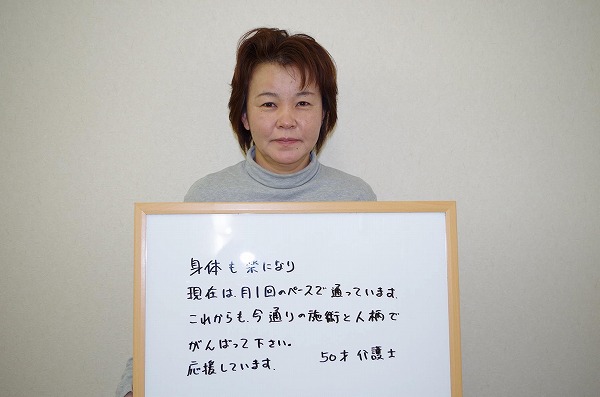 身体も楽になり
現在は、月1回のペースで通っています。
これからも、今通りの施術と人柄で
がんばって下さい。
応援しています。 50才 介護士